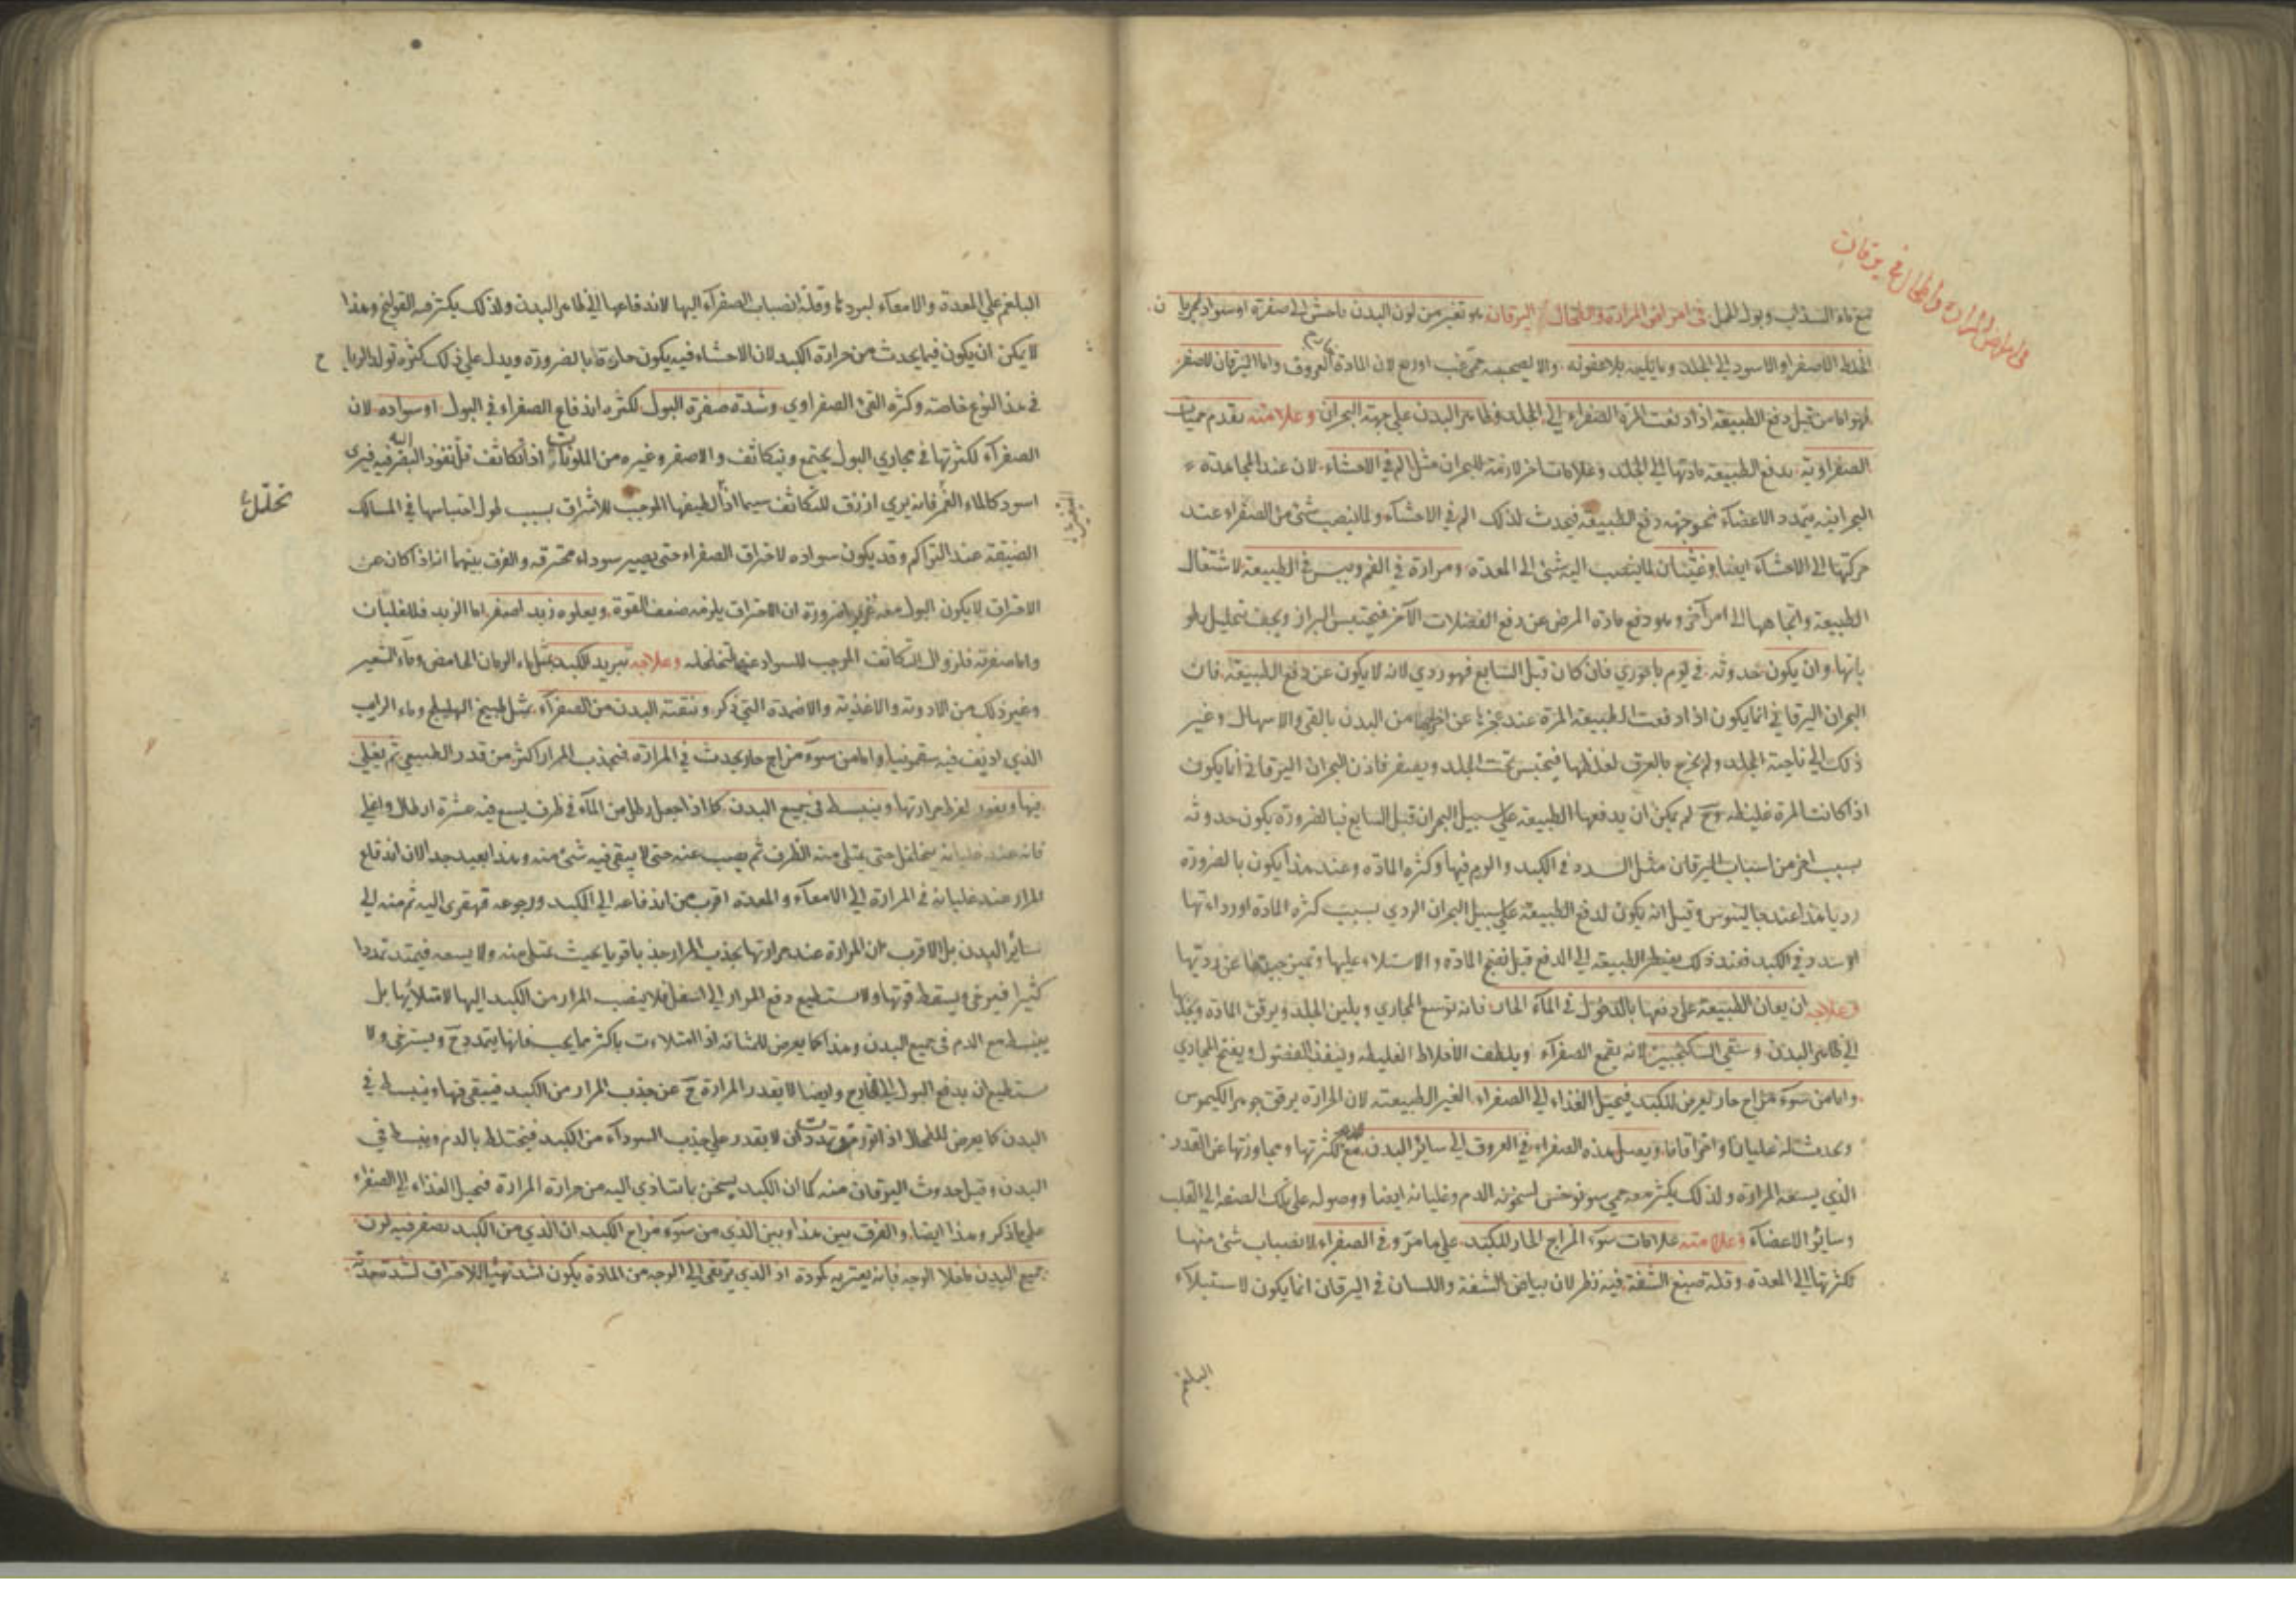 في امراض المرارة والطحال في يرقان
مع ماء السذاب وبول الجمل في امراض المرارة والطحال اليرقان هو تغير من لون البدن فاحش الى صفرة او سواد لجريان
الخلط الاصفر او الاسود الى الجلد وما يليه بلا عفونة والا لصحبه حمى غب او ربع لان المادة العروق واما اليرقان الاصفر
فهو اما من قبل دفع الطبيعة اذا دفعت المرة الصفراء الى الجلد وظاهر البدن على جهة البحران وعلامته تقدم حميات
الصفراوية بدفع الطبيعة مادتها الى الجلد وعلامات اخر لازمة للبحران مثل الم في الاحشاء لان عند المجاهدة
البحرانية يتمدد الاعضاء نحو جهة دفع الطبيعة فيحدث لذلك الم في الاحشاء ولما ينصب شئ من الصفراء عند
حركتها الى الاحشاء ايضا وغثيان لما ينصب اليه شئ الى المعدة ومرارة في الفم ويبس في الطبيعة لاشتغال
الطبيعة واتجاهها الى امر آخر وهو دفع مادة المرض عن دفع الفضلات الآخر فيحتبس البراز ويجف بتحليل
بانها وان يكون حدوثه في يوم باحوري فان كان قبل السابع فهو ردي لانه لا يكون عن دفع الطبيعة فان
البحران اليرقاني انما يكون اذا دفعت الطبيعة المرة عند عجزها عن اخراجها من البدن بالقئ والاسهال وغير
ذلك الى ناحية الجلد ولم يخرج بالعرق لغلظها فيحتبس تحت الجلد ويصفر فاذن البحران اليرقاني انما يكون
اذا كانت المرة غليظة وح لم يمكن ان يدفعها الطبيعة على سبيل البحران قبل السابع فبالضرورة يكون حدوثه
بسبب اخر من اسباب اليرقان مثل السدد في الكبد والورم فيها وكثرة المادة وعند هذا يكون بالضرورة
رديا هذا عند جالينوس وقيل انه يكون لدفع الطبيعة على سبيل البحران الردي بسبب كثرة المادة او رداءتها
او سدد في الكبد فعند ذلك يضطر الطبيعة الى الدفع قبل نضج المادة والاستلاء عليها وتميز جيدها عن رديها
وعلاجه ان يعان الطبيعة على دفعها بالدخول في الماء الحار فانه توسع المجاري ويلين الجلد ويرقق المادة ويجذبها
الى ظاهر البدن وسقي السكنجبين لانه يقمع الصفراء ويلطف الاخلاط الغليظة وينفذ الفضول ويفتح المجاري
واما من سوء مزاج حار يعرض للكبد فيحيل الغذاء الى الصفراء الغير الطبيعية لان الحرارة يرقق جوهر الكيموس
ويحدث له غليانا واحتراقا ما ويصل هذه الصفراء في العروق الى سائر البدن مع كثرتها ومجاوزتها عن القدر
الذي يسعه المرارة ولذلك يكثر معه حمى سونوخس لسخونة الدم وغليانه ايضا ووصوله على تلك الصفة الى القلب
وسائر الاعضاء وعلامته علامات سوء المزاج الحار للكبد على ما مر وقئ الصفراء لانصباب شئ منها
لكثرتها الى المعدة وقلة صبغ الشفة فيه نظر لان بياض الشفة واللسان في اليرقان انما يكون لاستيلاء
البلغم
البلغم على المعدة والامعاء لبردها وقلة انصباب الصفراء اليها لاندفاعها الى ظاهر البدن ولذلك يكثر معه القولنج وهذا
لا يمكن ان يكون فيما يحدث من حرارة الكبد لان الاحشاء فيه يكون حارة بالضرورة ويدل على ذلك كثرة تولد الرياح
في هذا النوع خاصة وكثرة القئ الصفراوي وشدة صفرة البول لكثرة اندفاع الصفراء في البول او سواده لان
الصفراء لكثرتها في مجاري البول يجتمع ويتكاثف والاصفر وغيره من الملونات اذا تكاثف قل نفوذ البصر فيه فيرى
اسود كالماء الغمر فانه يرى ازرق للتكاثف سيما اذا لطيفها الموجب للاشراق بسبب طول احتباسها في المسالك
تحلل
الضيقة عند التراكم وقد يكون سواده لاحتراق الصفراء حتى يصير سوداء محترقة والفرق بينهما انه اذا كان عن
الاحتراق لا يكون البول معه غزيرا ضرورة ان الاحتراق يلزمه ضعف القوة ويعلوه زبد اصفر اما الزبد فللغليان
واما صفرته فلزوال التكاثف الموجب للسواد عنها لتخلخله وعلاجه تبريد الكبد بمثل ماء الرمان الحامض وماء الشعير
وغير ذلك من الادوية والاغذية والاضمدة التي ذكر وتنقية البدن من الصفراء بمثل طبيخ الهليلج وماء الرايب
الذي اديف فيه سقمونيا واما من سوء مزاج حار يحدث في المرارة فيجذب المرار اكثر من قدر الطبيعي ثم يغلي
فيها ويفور لفرط حرارتها وينبسط في جميع البدن كما اذا جعل رطل من الماء في ظرف يسع فيه عشرة ارطال واغلي
فانه عند غليانه يتخلخل حتى يمتلئ منه الظرف ثم يصب عنه حتى لا يبقى فيه شئ منه وهذا بعيد جدا لان اندفاع
المرار عند غليانه في المرارة الى الامعاء والمعدة اقرب من اندفاعه الى الكبد ورجوعه قهقرى اليه ثم منه الى
سائر البدن بل الاقرب ان المرارة عند حرارتها يجذب المرار جذبا قويا بحيث يمتلئ منه ولا يسعه فيتمدد تمددا
كثيرا فيرخى ويسقط قوتها ولا يستطيع دفع المرار الى اسفل فلا ينصب المرار من الكبد اليها لامتلائها بل
ينبسط مع الدم في جميع البدن وهذا كما يعرض للمثانة اذا امتلاءت باكثر مما يجب فانها يتمدد ح ويسترخى ولا
يستطيع ان يدفع البول الى الخارج وايضا لا يقدر المرارة ح عن جذب المرار من الكبد فيبقى فيها وينبسط في
البدن كما يعرض للطحال اذا تورم وتمدد ان لا يقدر على جذب السوداء من الكبد فيختلط بالدم وينبسط في
البدن وقيل حدوث اليرقان منه كما ان الكبد يسخن بما يتادي اليه من حرارة المرارة فيحيل الغذاء الى الصفراء
على ما ذكر وهذا ايضا والفرق بين هذا وبين الذي من سوء مزاج الكبد ان الذي من الكبد يصفر فيه لون
جميع البدن ما خلا الوجه فانه يعتريه كمودة اذ الذي يرتقي الى الوجه من المادة يكون اشد تهيئا للاحتراق لشدة حدته